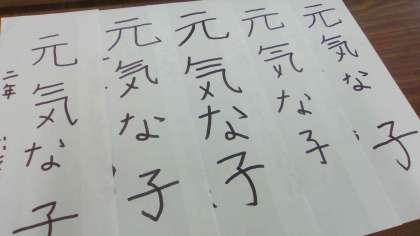 元気な子
元気な子
元気な子
元気な子
元気な子
二年